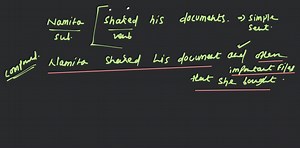 Namita shaked his documents. → simple
sub. verb sent.
compound. Namita shaked his document and other
important files
that she bought.